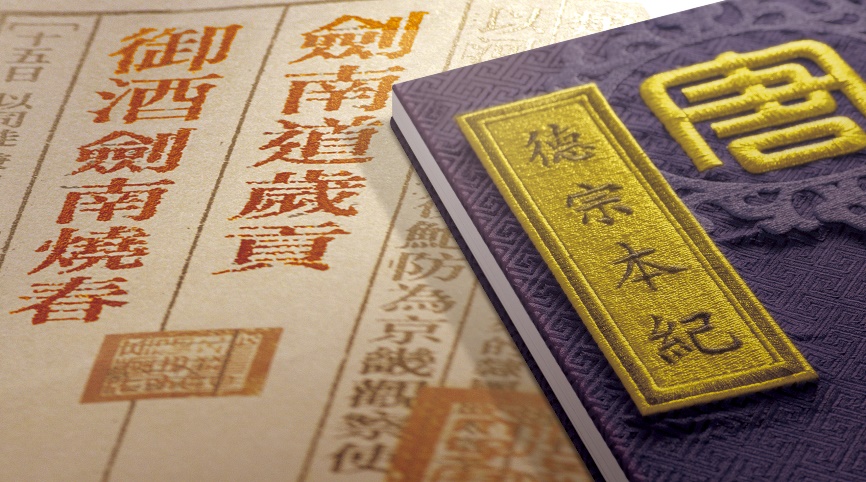 唐
德宗本紀
鮑防為京畿觀察使
劍南道歲貢
御酒劍南燒春
十五日 以同